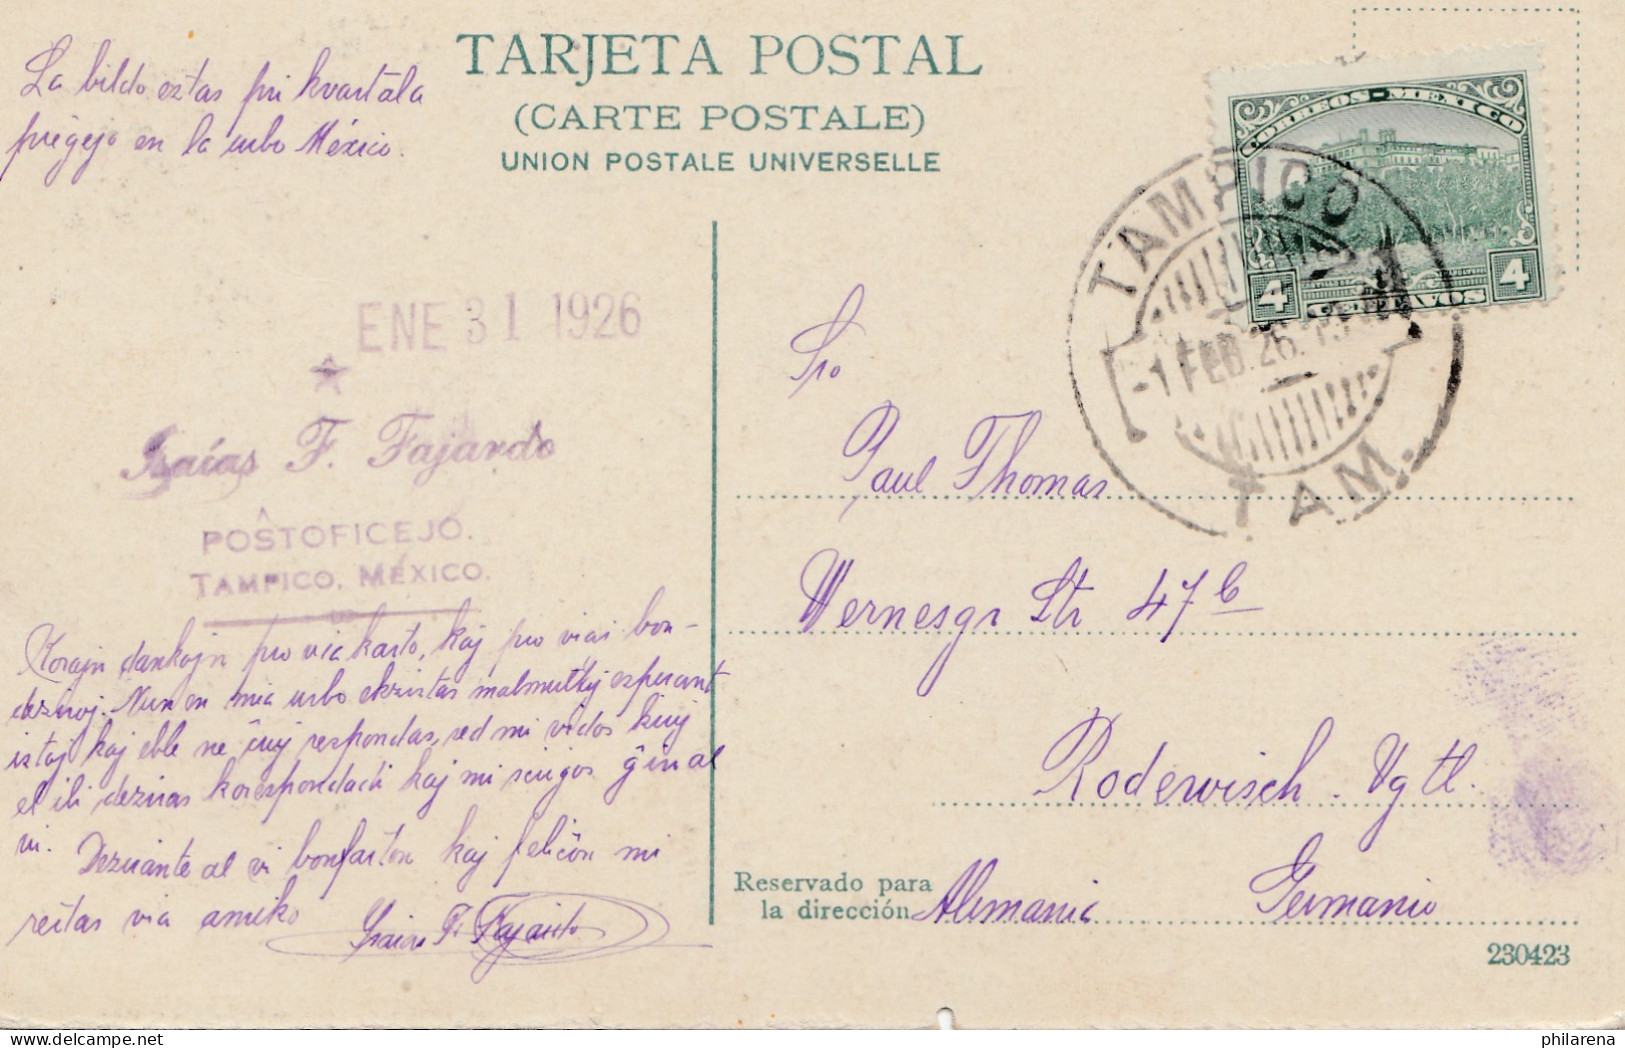 TARJETA POSTAL
(CARTE POSTALE)
UNION POSTALE UNIVERSELLE
La bildo estas pri kvartala
preĝejo en la urbo México.
CORREOS-MEXICO
4 CENTAVOS 4
TAMPICO
-1 FEB. 26.
TAM.
ENE 31 1926
Isaías F. Fajardo
POŜTOFICEJO.
TAMPICO. MÉXICO.
Korajn dankojn pro via karto, kaj pro viaj bon-
deziroj. Nun en mia urbo ekzistas malmultaj esperant
istaj kaj eble ne ĉiuj respondas, sed mi vidos kiuj
el ili deziras korespondadi kaj mi sciigos ĝin al
vi. Dezirante al vi bonfarton kaj feliĉon mi
restas via amiko
Isaías F. Fajardo
Sro
Paul Thomas
Wernesgr Str 47b
Rodewisch. Vgtl.
Reservado para
la dirección
Alemania Germanio
230423
philarena